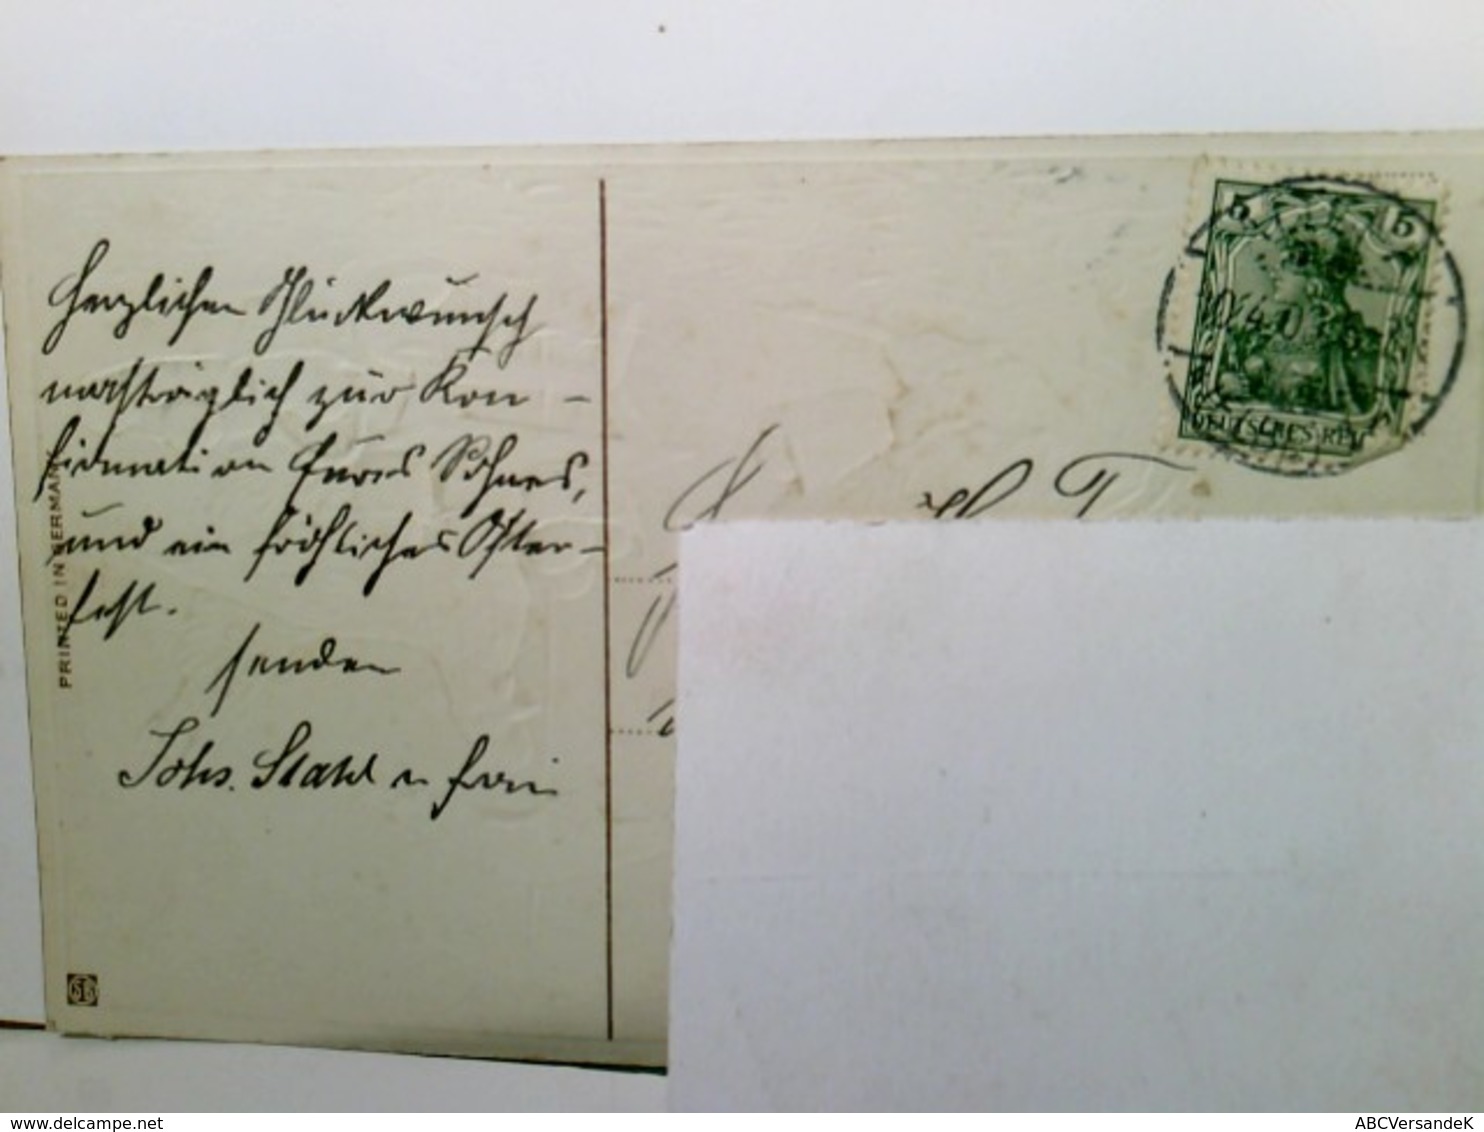 Herzlichen Glückwunsch
nachträglich zur Kon-
firmation Eures Sohnes,
und ein fröhliches Oster-
fest.
senden
Johs. Stahl u Frau
PRINTED IN GERMANY
5 5
10.4.0
DEUTSCHES REICH
delcampe.net
ABCVersandeK